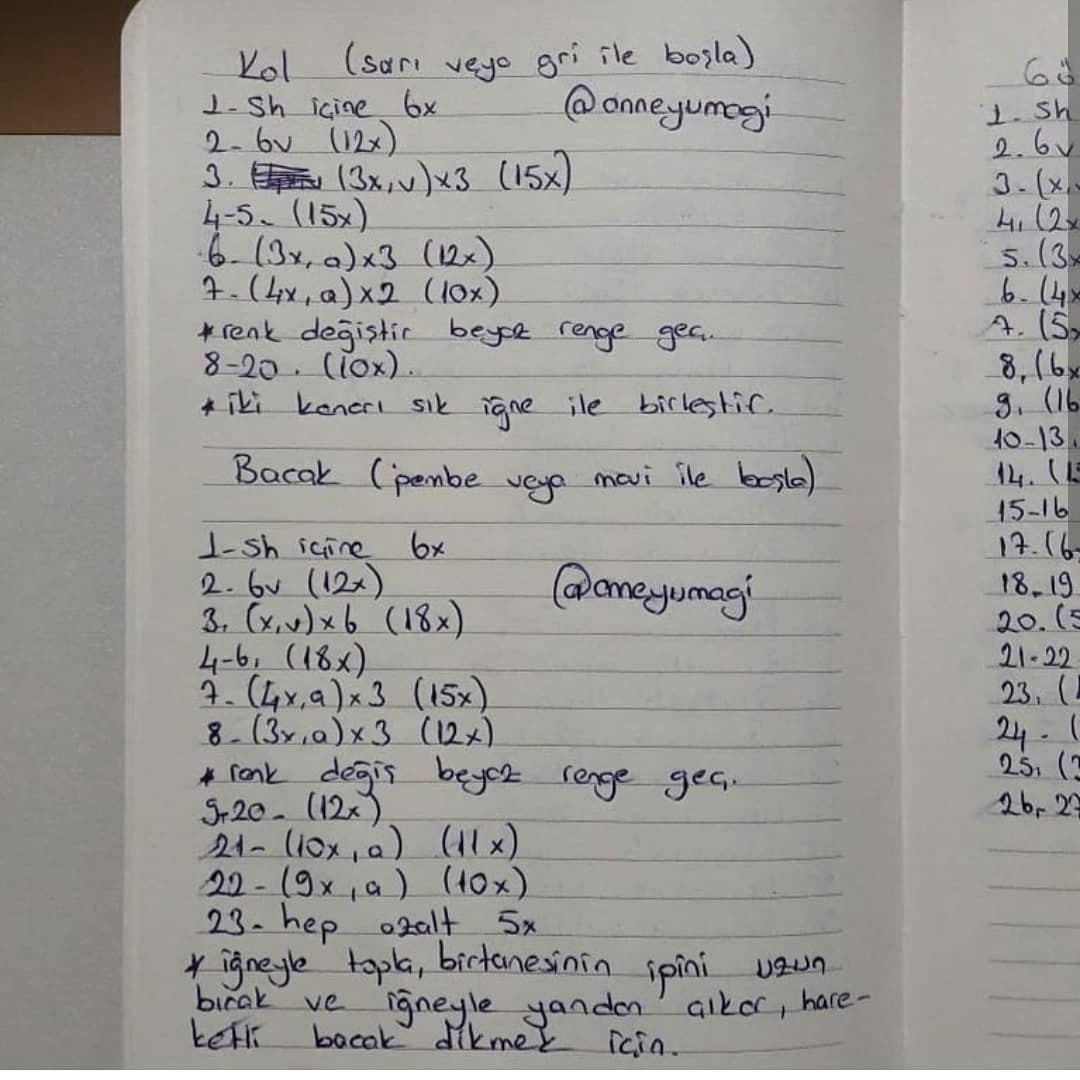 Kol (sarı veya gri ile başla)
1- Sh içine 6x @anneyumagi
2- 6v (12x)
3. (3x,v)x3 (15x)
4-5- (15x)
6- (3x, a)x3 (12x)
7- (4x, a)x2 (10x)
* renk değiştir beyaz renge geç.
8-20. (10x).
* iki kenarı sık iğne ile birleştir.
Bacak (pembe veya mavi ile başla)
1- Sh içine 6x
2. 6v (12x) @anneyumagi
3. (x,v)x6 (18x)
4-6. (18x)
7- (4x,a)x3 (15x)
8- (3x,a)x3 (12x)
* renk değiş beyaz renge geç.
9-20- (12x)
21- (10x, a) (11x)
22- (9x, a) (10x)
23- hep azalt 5x
* iğneyle topla, birtanesinin ipini uzun
bırak ve iğneyle yandan çıkar, hare-
ketli bacak dikmek için.
1. Sh
2. 6v
3- (x,
4. (2x
5. (3x
6- (4x
7. (5,
8. (6x
9. (16
10-13.
14. (
15-16
17. (6
18-19
20. (5
21-22
23. (
24- (
25. (3
26- 27